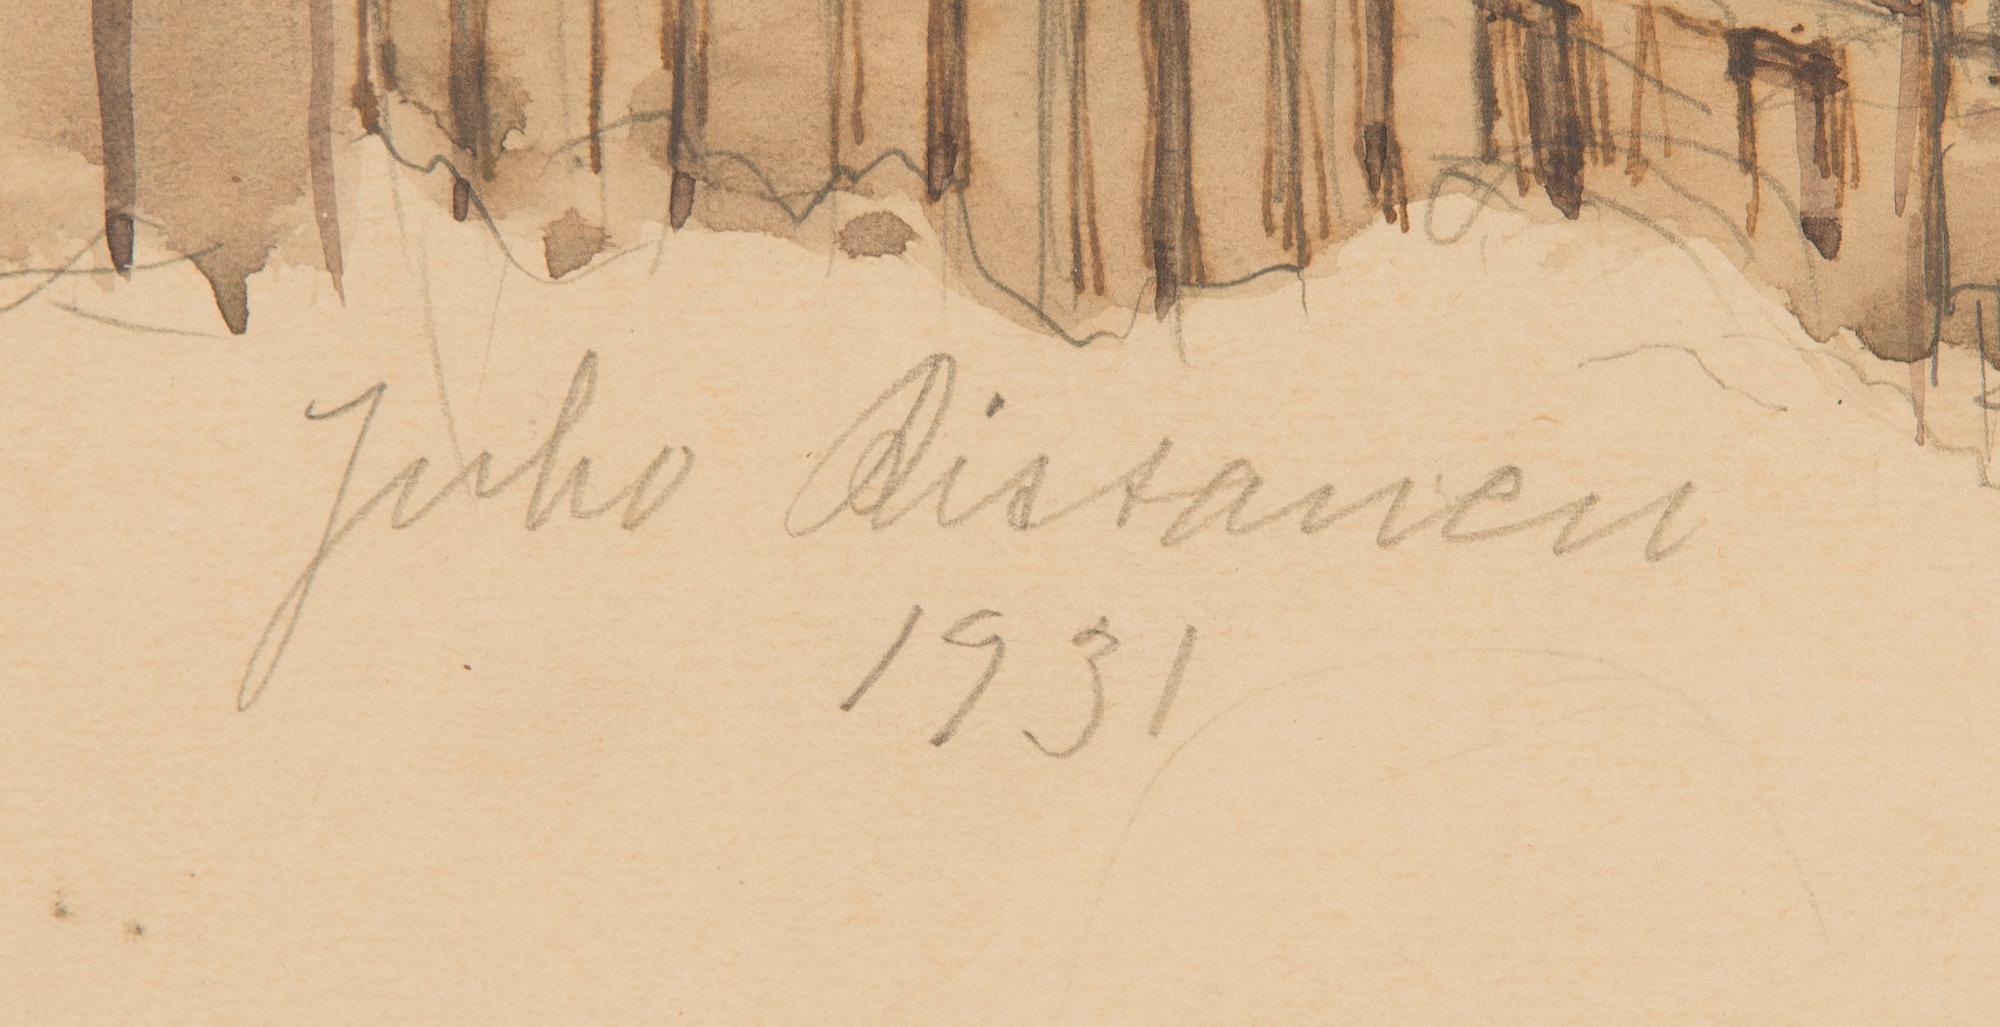 Juho Ristanen
1931